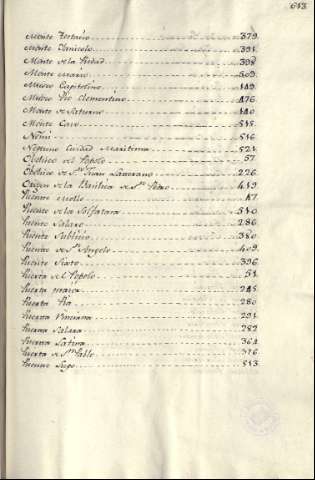 613
Monte Testacio 379
Monte Janicolo 391
Monte de la Piedad 398
Monte Mario 509
Museo Capitolino 149
Museo Pio Clementino 476
Monte de Saturno 140
Monte Cavo 515
Nemi 516
Neptuno Ciudad Maritima 521
Obelisco del Popolo 57
Obelisco de Sn. Juan Laterano 226
Origen de la Basilica de Sn. Pedro 419
Puente Molle 47
Puente de la Solfatara 510
Puente Salaro 286
Puente Sublicio 380
Puente de Sn. Angelo 409
Puente Sixto 396
Puerta del Popolo 51
Puerta 245
Puerta Pia 280
Puerta Pinciana 291
Puerta Salara 282
Puerta Latina 364
Puerta de Sn. Pablo 376
513